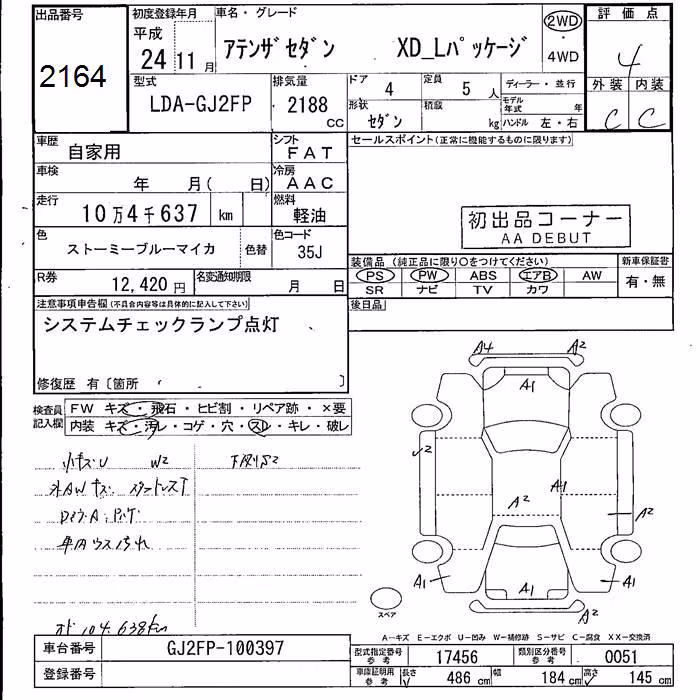 出品番号
2164
初度登録年月
平成
24 11月
車名・グレード
アテンザセダン XD_Lパッケージ
2WD
4WD
評価点
4
外装 内装
C C
型式
LDA-GJ2FP
排気量
2188
CC
ドア
4
定員
5人
ディーラー・並行
形状
セダン
積載
kg
モデル年式 年
ハンドル 左・右
車歴
自家用
シフト
FAT
セールスポイント(正常に機能するものに限ります)
車検
年 月( 日)
冷房
AAC
走行
10万4千637 km
燃料
軽油
初出品コーナー
AA DEBUT
色
ストーミーブルーマイカ
色替
色コード
35J
装備品(純正品に限り○をつけてください)
新車保証書
PS PW ABS エアB AW
有・無
SR ナビ TV カワ
R券
12,420円
名変通知期限
月 日
後日品
注意事項申告欄(不具合内容等は具体的に記入して下さい)
システムチェックランプ点灯
修復歴 有〔箇所 〕
検査員記入欄
FW キズ・飛石・ヒビ割・リペア跡・×要
内装 キズ・汚レ・コゲ・穴・スレ・キレ・破レ
小キズU W2
外AWキズ
車内ウスヨゴレ
オド104,638km
A4 A2
A1
A2
A1
A2
A2
A1
A1
A1
A2
スペア
A-キズ E-エクボ U-凹み W-補修跡 S-サビ C-腐食 XX-交換済
車台番号
GJ2FP-100397
型式指定番号
参考
17456
類別区分番号
参考
0051
登録番号
車庫証明用
参考
長さ
486cm
幅
184cm
高さ
145cm